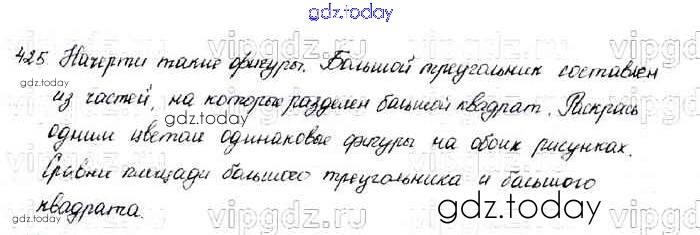 gdz.today
425. Начерти такие фигуры. Большой треугольник составлен
gdz.today
из частей, на которые разделен большой квадрат. Раскрась
одним цветом одинаковые фигуры на обоих рисунках.
Сравни площади большого треугольника и большого
квадрата.
vipgdz.ru
gdz.today